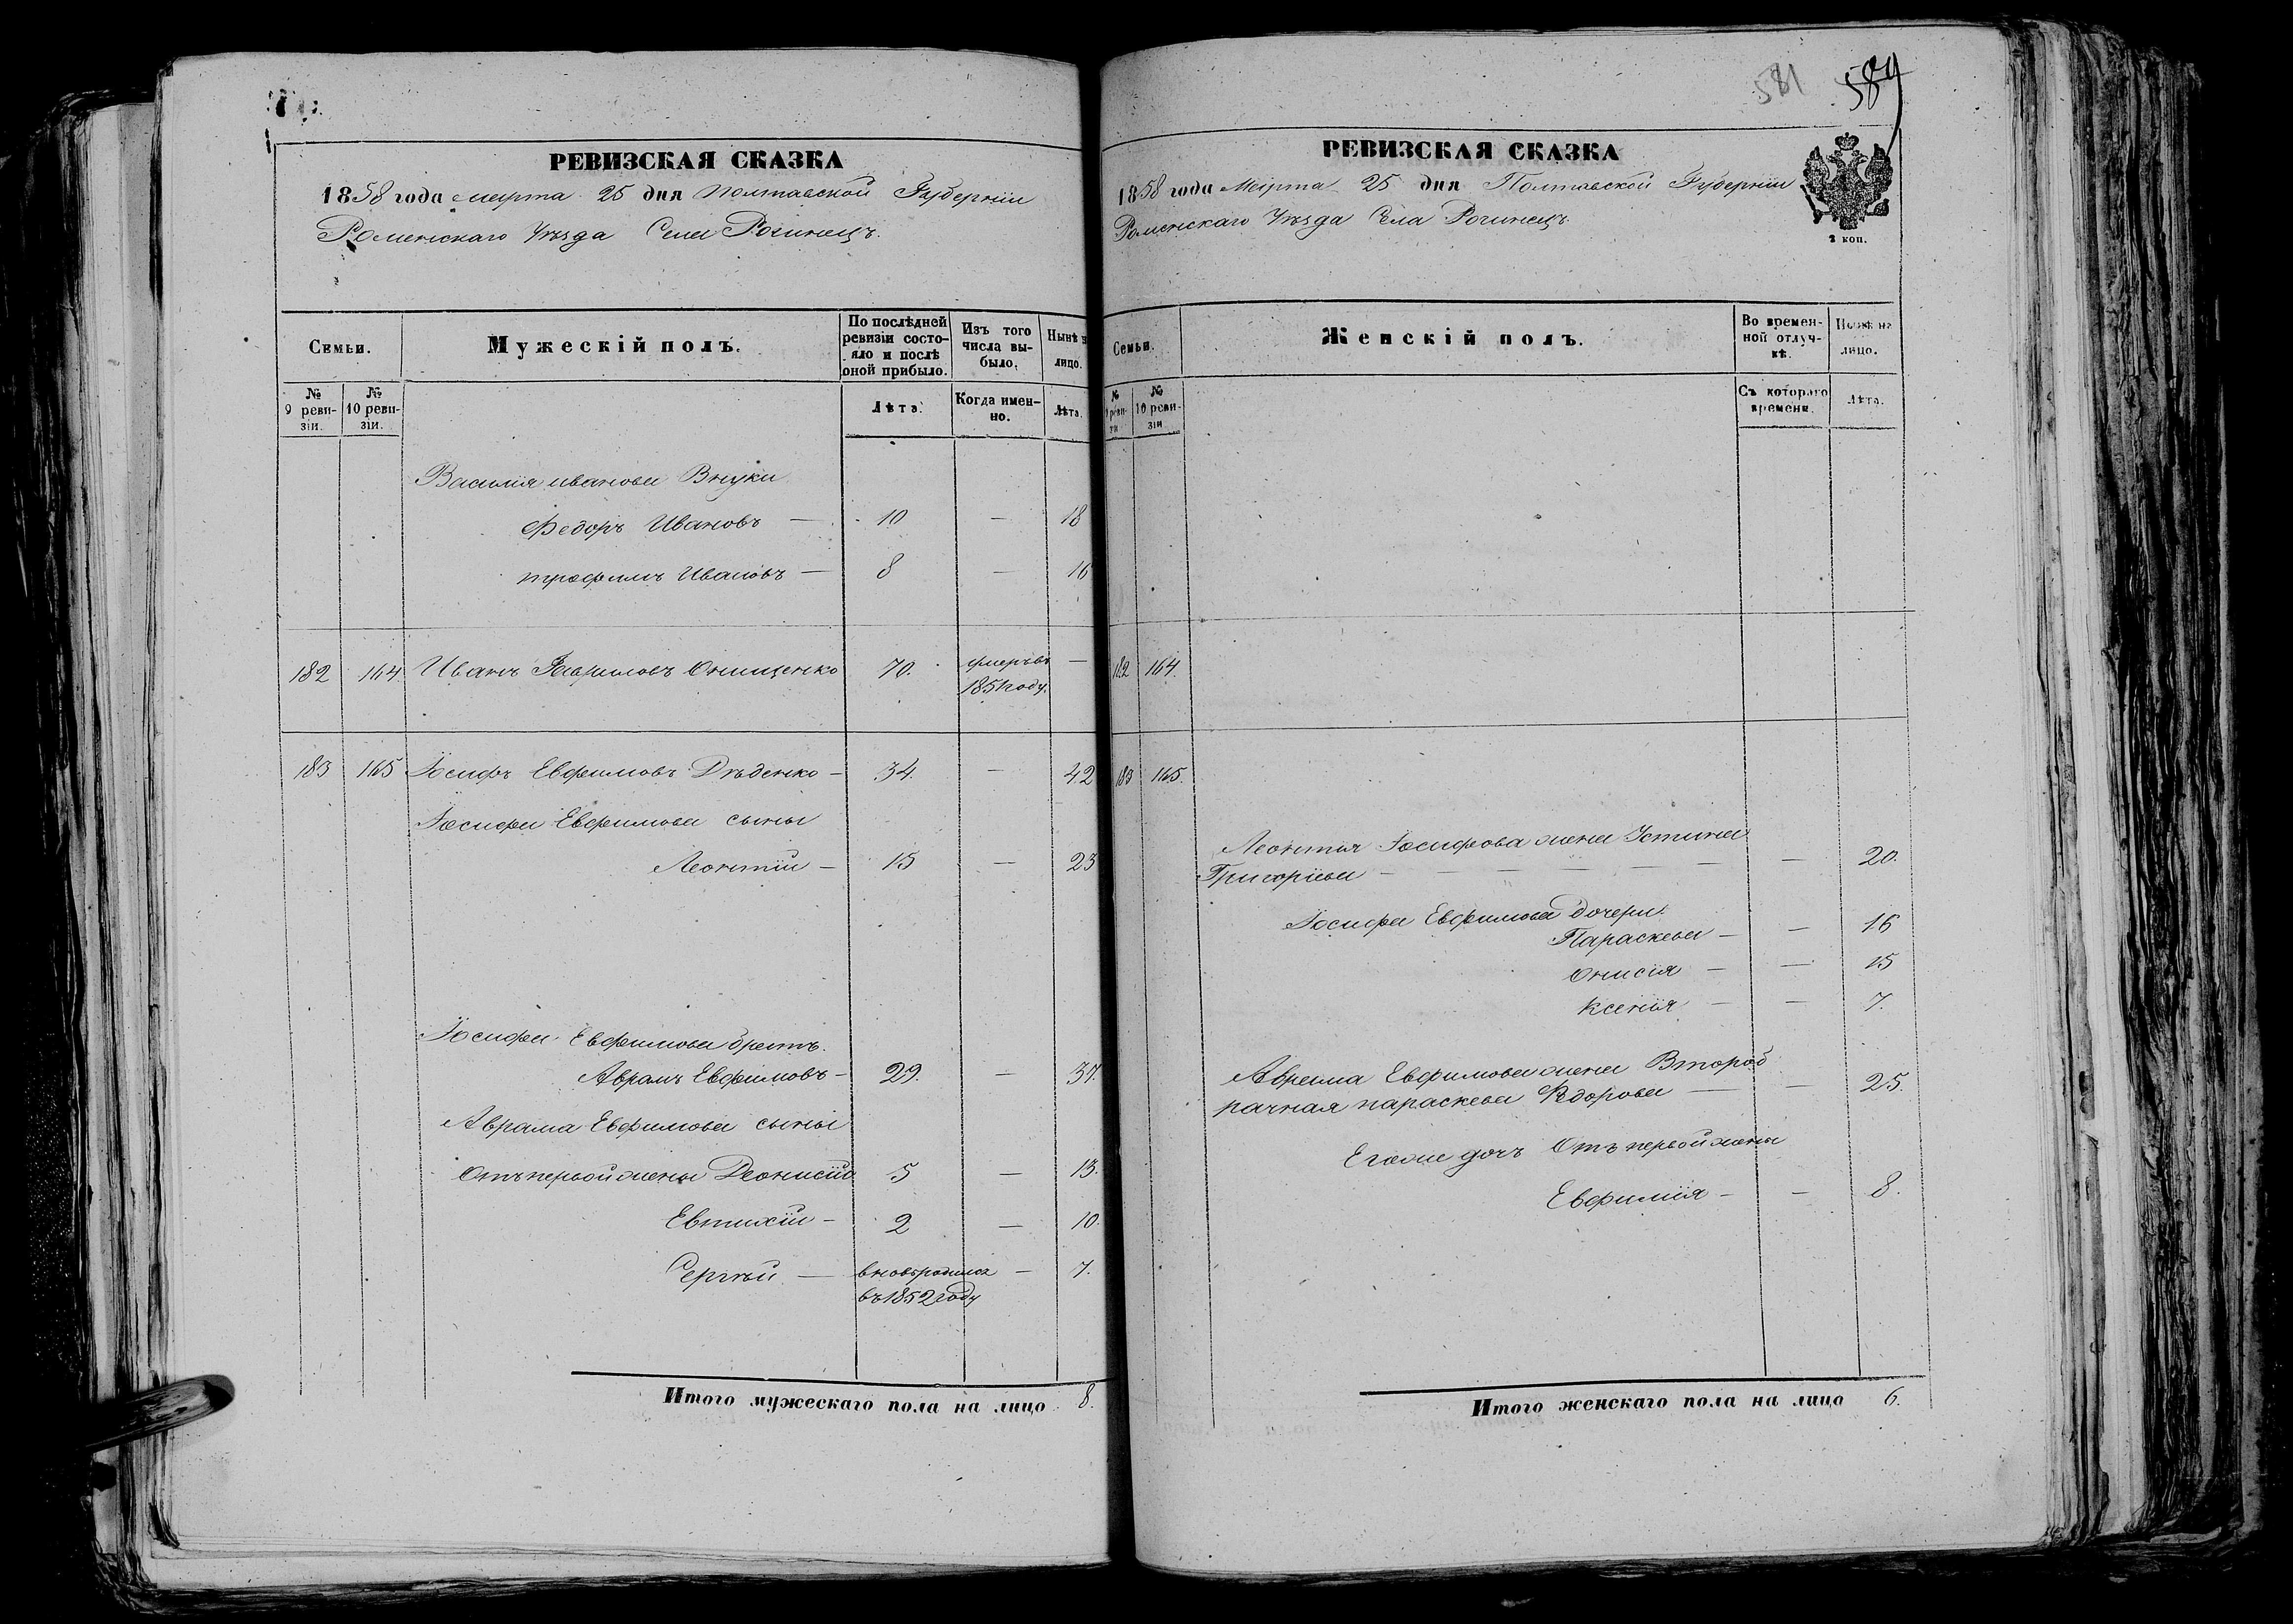 РЕВИЗСКАЯ СКАЗКА
1858 года марта 25 дня Полтавской Губерніи
Роменскаго Уѣзда Села Рогинецъ.
Семьи.
Мужескій полъ.
По послѣдней ревизіи состояло и послѣ оной прибыло.
Изъ того числа выбыло.
Нынѣ н лицо.
№ 9 ревизіи.
№ 10 ревизіи.
Лѣта.
Когда именно.
Лѣта.
Василія иванова Внуки
Федоръ Ивановъ — 10 — 18
трофимъ Ивановъ — 8 — 16
182 164 Иванъ Гавриловъ Онищенко 70. умеръ въ —
1851 году.
183 165 Іосифъ Евфимовъ Дѣденко — 34. — 42
Іосифа Евфимова сыны
Леонтій — 15 — 23
Іосифа Евфимова братъ.
Аврамъ Евфимовъ — 29. — 37.
Аврама Евфимова сыны
Отъ первой жены Деонисій 5 — 13.
Евтихій — 2 — 10.
Сергѣй — вновь родился — 7.
въ 1852 году
Итого мужескаго пола на лицо 8.
581 589
РЕВИЗСКАЯ СКАЗКА
1858 года Марта 25 дня Полтавской Губерніи
Роменскаго Уѣзда Села Рогинецъ
2 коп.
Семьи.
Женскій полъ.
Во временной отлучкѣ.
Нынѣ на лицо.
№ 10 ревизіи
Съ котораго времени.
Лѣта.
182 164.
183 165.
Леонтія Іосифова жена Устина
Григоріева — — — — — — 20.
Іосифа Евфимова дочери.
Параскева — — 16
Онисія — — 15
Ксенія — — 7.
Аврама Евфимова жена Второб
рачная параскева Федорова — — 25.
Егоже дочъ Отъ первой жены
Евфимія — — 8.
Итого женскаго пола на лицо 6.